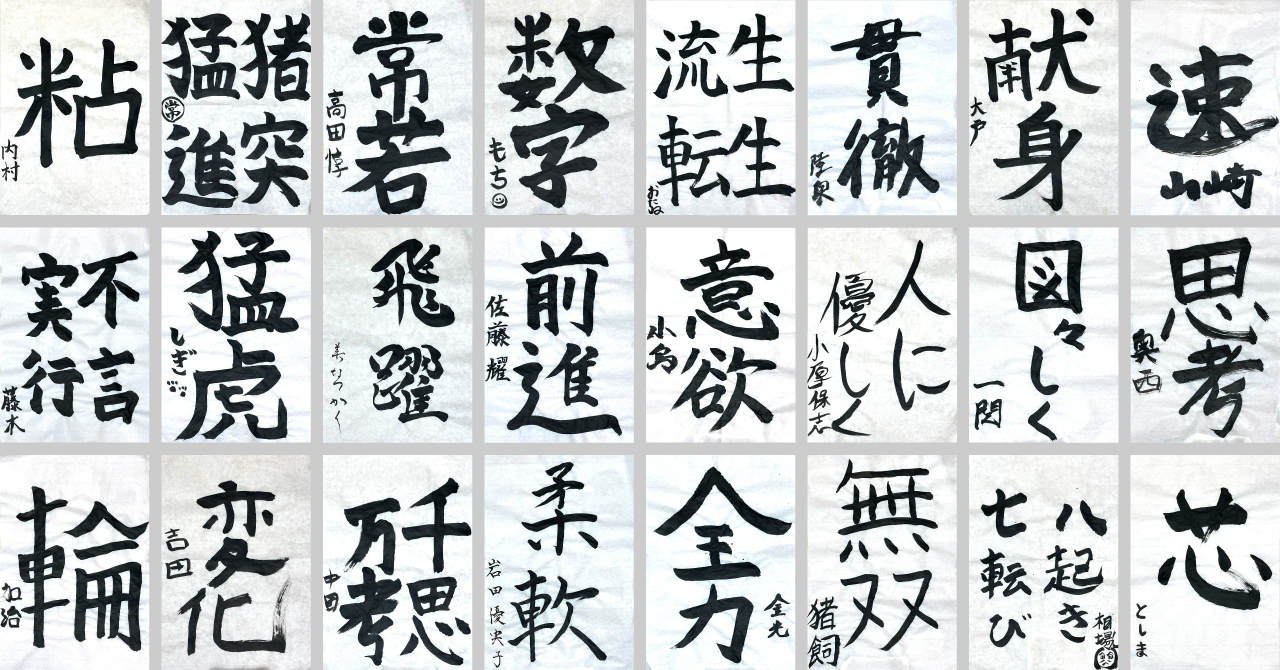 粘
内村
猪突
猛進
常
常若
高田惇
数字
もち
生生
流転
おだね
貫徹
陸奥
献身
大戸
速
山崎
不言
実行
藤木
猛虎
しぎ
飛躍
前進
佐藤耀
意欲
小島
人に
優しく
小厚保志
図々しく
一関
思考
奥西
輪
加治
変化
吉田
千思
万考
中田
柔軟
岩田優央子
全力
金光
無双
猪飼
八起き
七転び
相場
芯
としま